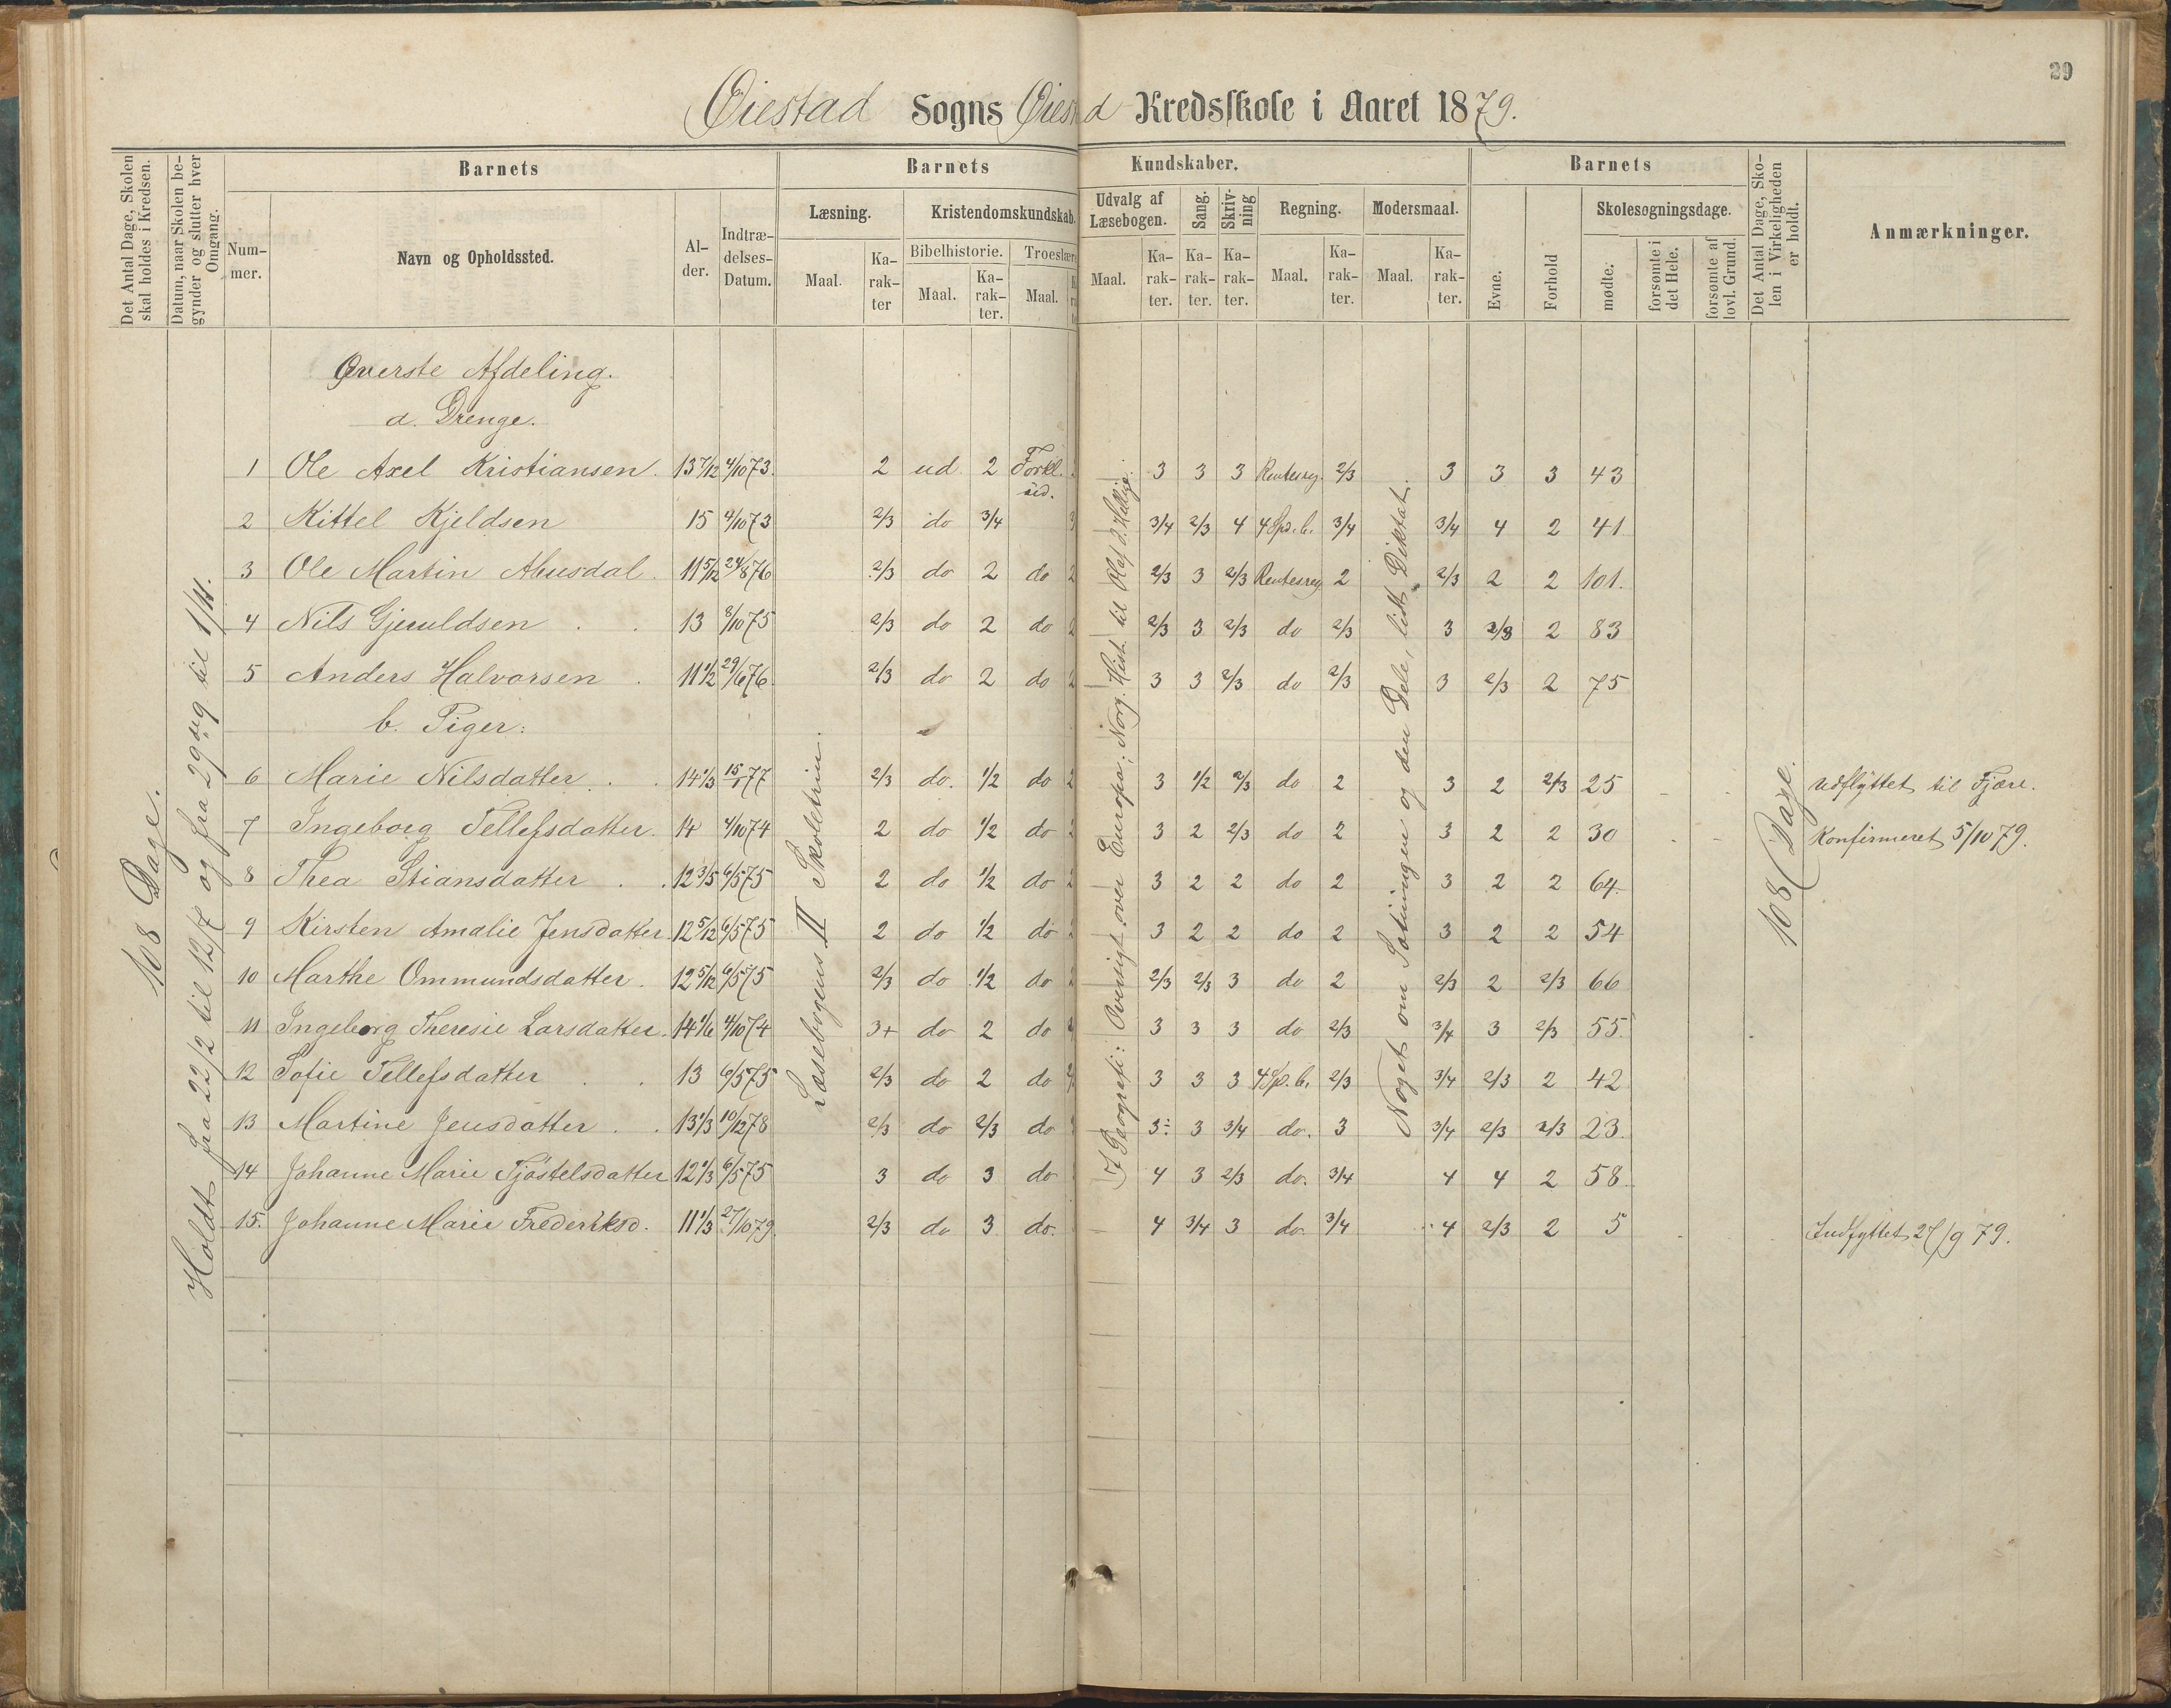 29
Øiestad Sogns Øiestad Kredsskole i Aaret 1879.
Det Antal Dage, Skolen skal holdes i Kredsen.
Datum, naar Skolen begynder og slutter hver Omgang.
Barnets
Num-mer.
Navn og Opholdssted.
Al-der.
Indtræ-delses-Datum.
Barnets Kundskaber.
Læsning.
Maal.
Ka-rak-ter
Kristendomskundskab.
Bibelhistorie.
Maal.
Ka-rak-ter.
Troeslære
Maal.
Udvalg af Læsebogen.
Maal.
Ka-rak-ter.
Sang.
Ka-rak-ter.
Skriv-ning
Ka-rak-ter.
Regning.
Maal.
Ka-rak-ter.
Modersmaal.
Maal.
Ka-rak-ter.
Barnets
Evne.
Forhold
Skolesøgningsdage.
mødte.
forsømte i det Hele.
forsømte af lovl. Grund.
Det Antal Dage, Sko-len i Virkeligheden er holdt.
Anmærkninger.
108 Dage.
Holdt fra 22/2 til 12/7 og fra 29 aug til 1/11.
Læsebogens II Skoletrin.
I Geografi: Oversigt over Europa; Norg. Hist. til Olaf d. Hellige.
Noget om Sætningen og den Dele, lidt Diktat.
108 Dage.
Øverste Afdeling.
a. Drenge.
1 Ole Axel Kristiansen. 13 7/12 4/10 73. 2 ud 2 Forkl. ud. 3 3 3 Rentesreg. 2/3 3 3 3 43
2 Kittel Kjeldsen 15 4/10 73 2/3 do 3/4 3/4 2/3 4 4 Sp. b. 3/4 3/4 4 2 41
3 Ole Martin Abusdal. 11 5/12 24/8 76 2/3 do 2 do 2/3 3 2/3 Rentesreg 2 2/3 2 2 101.
4 Nils Gjeruldsen 13 8/10 75 2/3 do 2 do 2/3 3 2/3 do 2/3 3 2/3 2 83
5 Anders Halvorsen 11 1/2 29/6 76 2/3 do 2 do 3 3 2/3 do 2/3 3 2/3 2 75
b. Piger:
6 Marie Nilsdatter 14 1/3 15/1 77 2/3 do. 1/2 do 3 1/2 2/3 do 2 3 2 2/3 25 Udflyttet til Fjære.
7 Ingeborg Tellefsdatter. 14 4/10 74 2 do 1/2 do 3 2 2/3 do 2 3 2 2 30 Konfirmeret 5/10 79.
8 Thea Stiansdatter 12 3/5 6/5 75 2 do 1/2 do 3 2 2 do 2 3 2 2 64.
9 Kirsten Amalie Jensdatter 12 5/12 6/5 75 2 do 1/2 do 3 2 2 do 2 3 2 2 54
10 Marthe Ommundsdatter. 12 5/12 6/5 75 2/3 do 1/2 do 2/3 2/3 3 do 2 2/3 2 2/3 66
11 Ingeborg Theresie Larsdatter. 14 1/6 4/10 74 3+ do 2 do 3 3 3 do 2/3 3/4 3 2/3 55.
12 Sofie Tellefsdatter 13 6/5 75 2/3 do 2 do 3 3 3 4 Sp. b. 2/3 3/4 2/3 2 42
13 Martine Jensdatter 13 1/3 10/12 78 2/3 do 2/3 do 3÷ 3 3/4 do. 3 3/4 2/3 2/3 23.
14 Johanne Marie Tjøstelsdatter 12 1/3 6/5 75 3 do 3 do 4 3 2/3 do. 3/4 4 4 2 58.
15. Johanne Marie Frederiksd. 11 1/3 27/10 79. 2/3 do 3 do. 4 3/4 3 do. 3/4 4 2/3 2 5 Indflyttet 27/9 79.